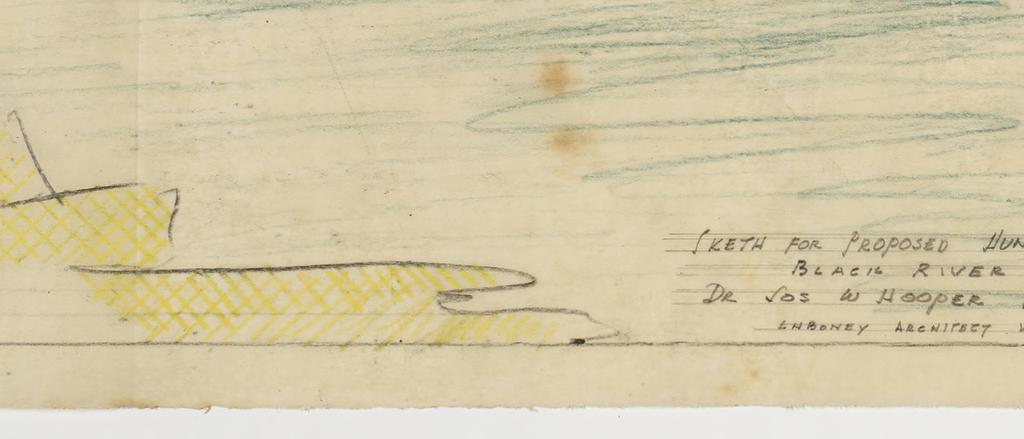 SKETH FOR PROPOSED HUN
BLACK RIVER
DR JOS W HOOPER
LNBONEY ARCHITECT